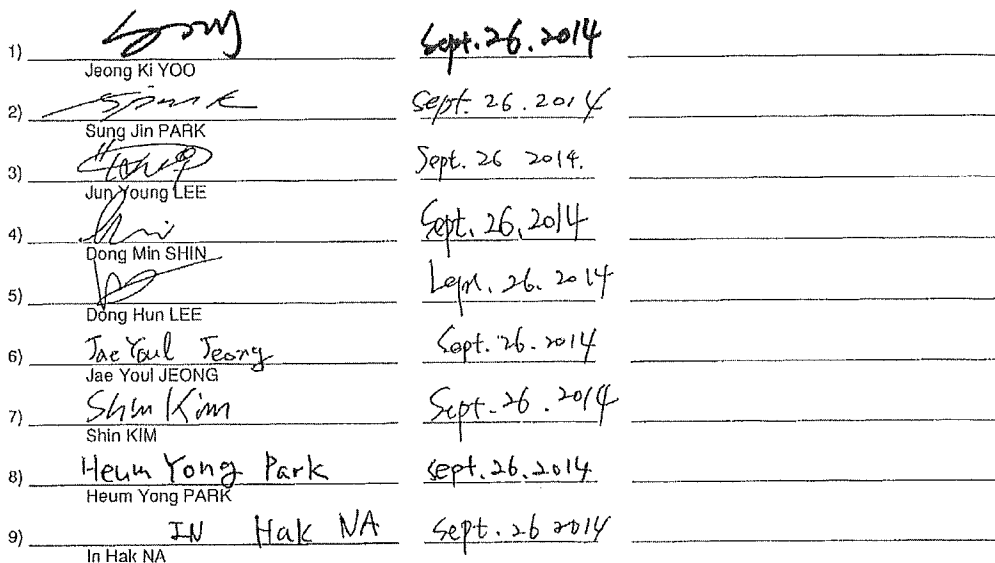 1) Sept. 26. 2014
Jeong Ki YOO
2) Sept. 26. 2014
Sung Jin PARK
3) Sept. 26 2014.
Jun Young LEE
4) Sept. 26, 2014
Dong Min SHIN
5) Sept. 26. 2014
Dong Hun LEE
6) Jae Youl Jeong Sept. 26. 2014
Jae Youl JEONG
7) Shin Kim Sept. 26. 2014
Shin KIM
8) Heum Yong Park Sept. 26. 2014
Heum Yong PARK
9) IN Hak NA Sept. 26 2014
In Hak NA